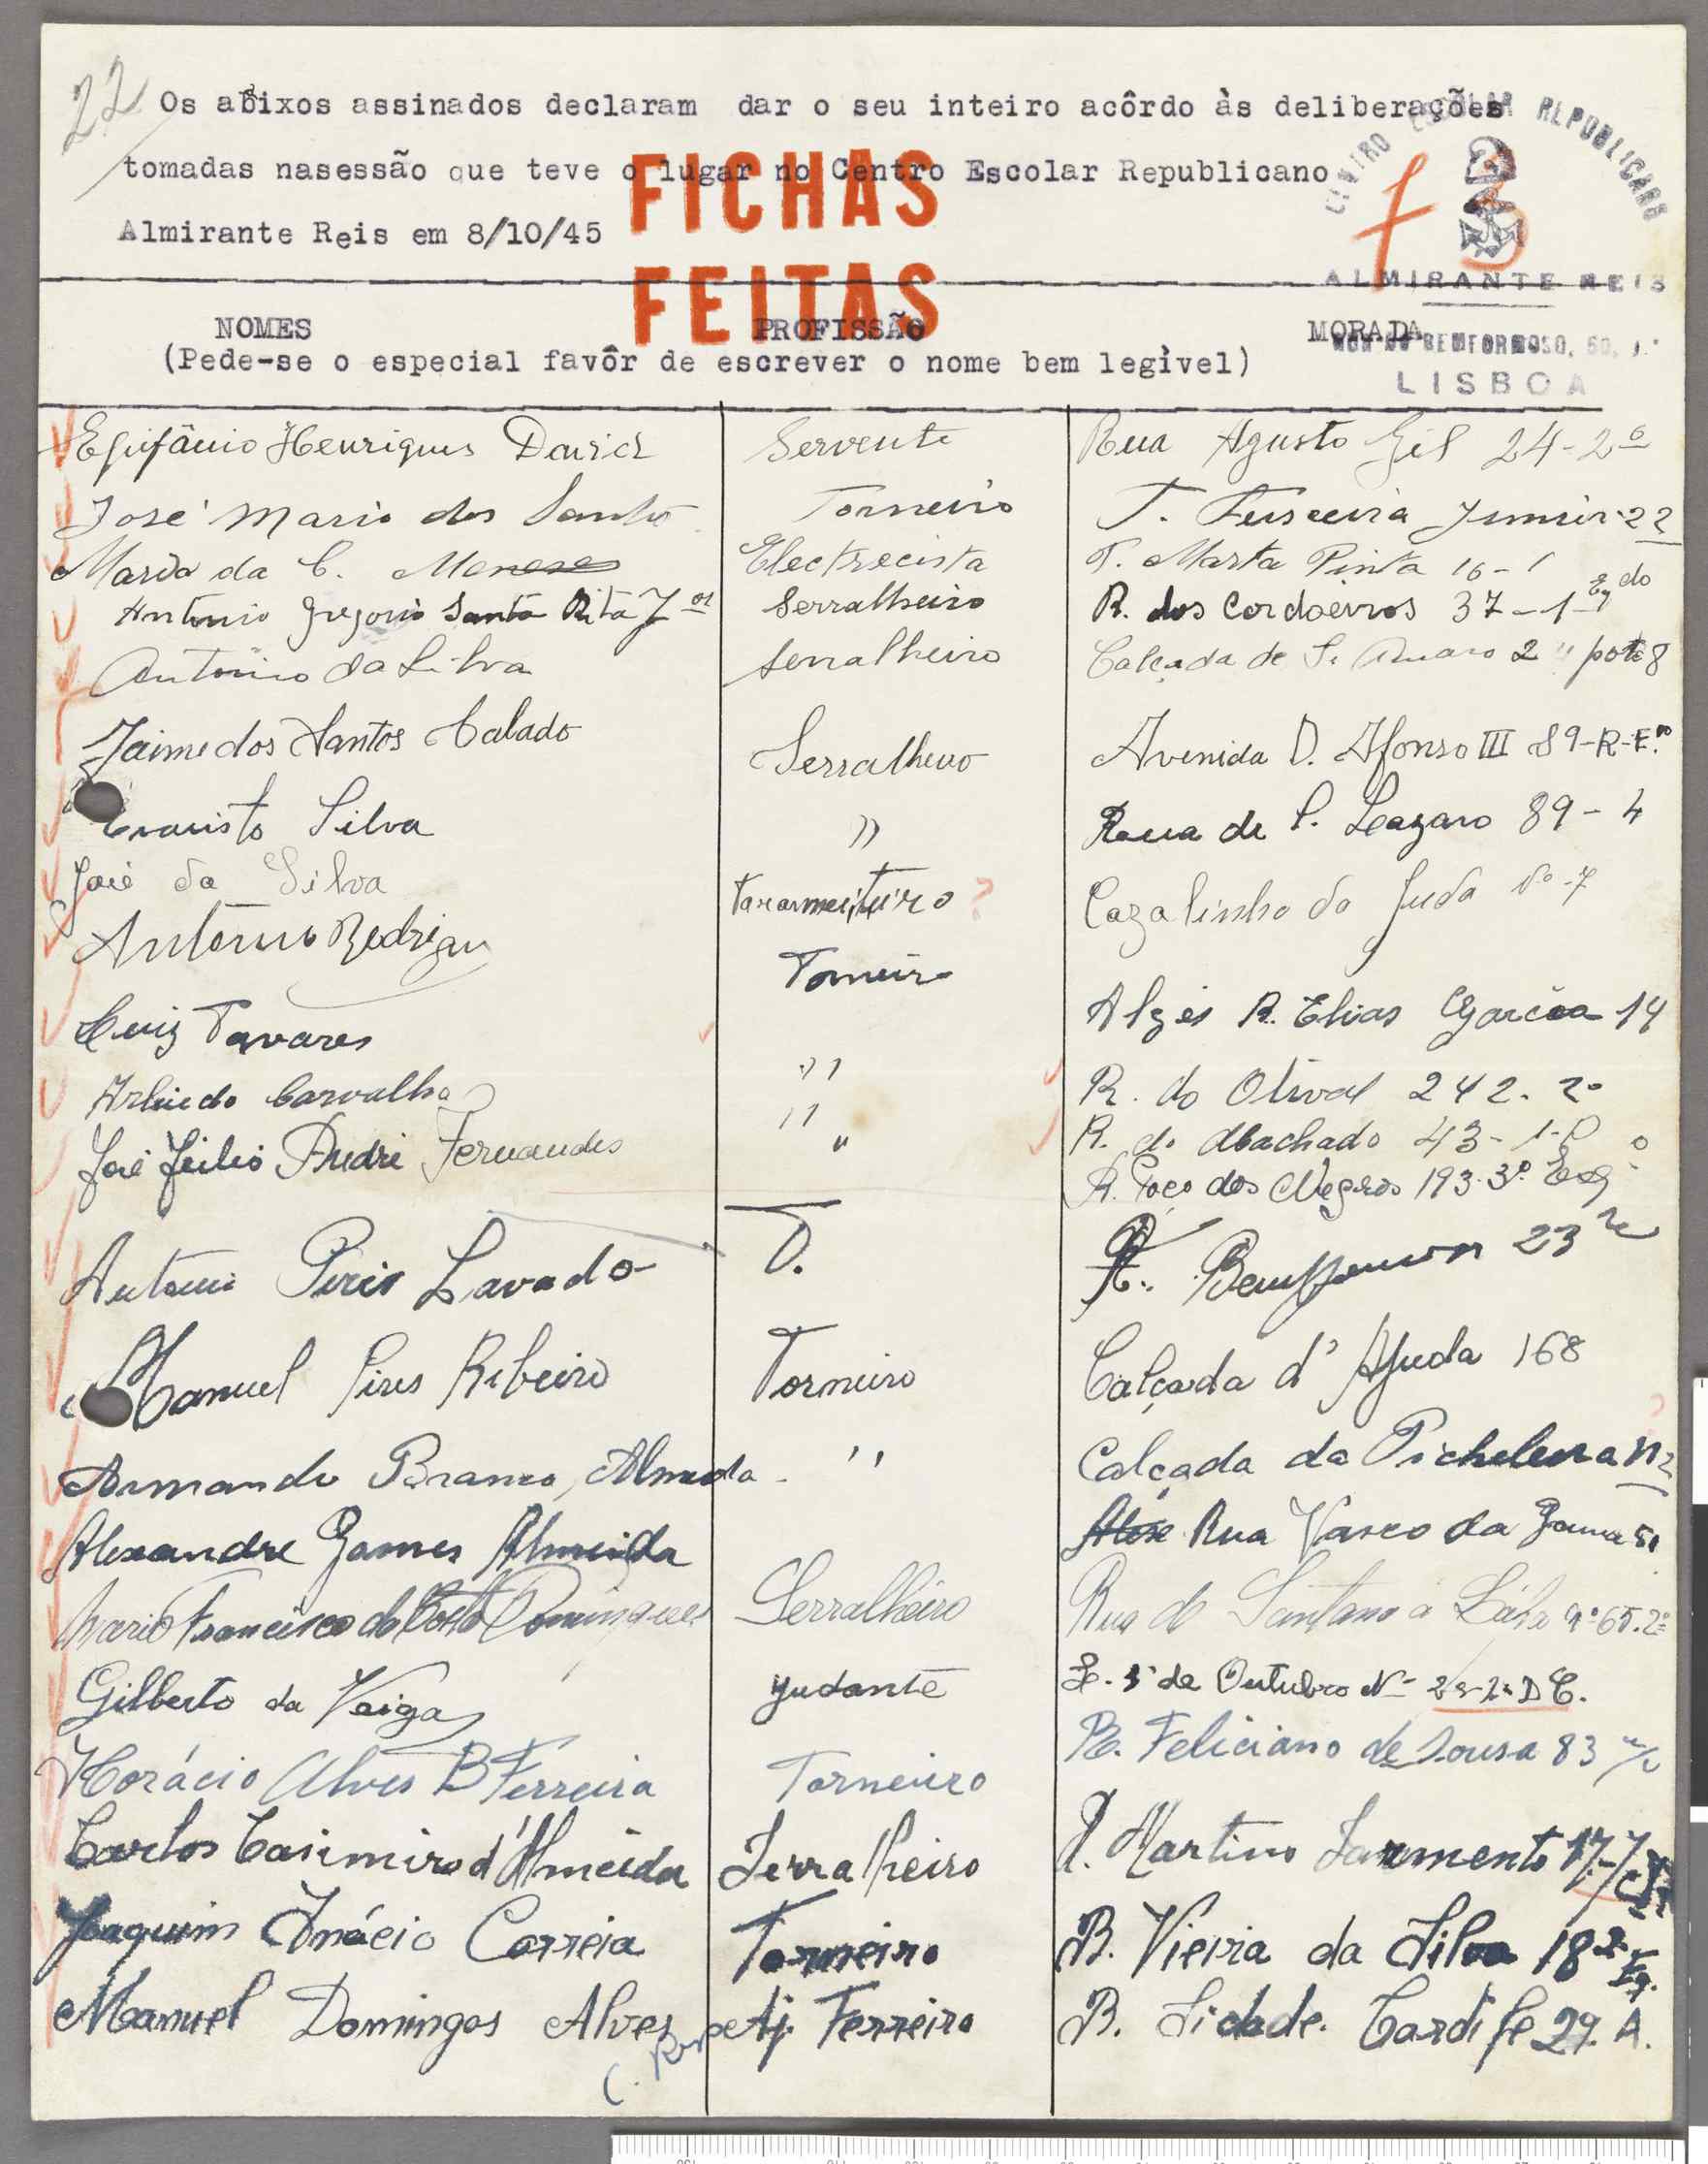 22
Os abaixos assinados declaram dar o seu inteiro acôrdo às deliberações
CENTRO ESCOLAR REPUBLICANO
tomadas nasessão que teve o lugar no Centro Escolar Republicano
FICHAS
Almirante Reis em 8/10/45
ALMIRANTE REIS
FEITAS
NOMES PROFISSÃO MORADA
RUA DO BEMFORMOSO, 50, 1.º
(Pede-se o especial favôr de escrever o nome bem legìvel)
LISBOA
Epifânio Henriques David Servente Rua Agusto Gil 24-2º
José Mario dos Santos Torneiro T. Junior 22
Maria da C. Meneses Electrecista T. Marta Pinta 16-1
Antonio Gregorio Santa Rita Jor Serralheiro R. dos Cordoeiros 37-1-Eqdo
Antonio da Silva Serralheiro Calçada de S. Amaro 2 " pote 8
Jaime dos Santos Calado Serralheiro Avenida D. Afonso III 89-R-E.
Evaristo Silva " Rua de S. Leazaro 89-4
José da Silva ? Cazalinho da Juda Nº-7
Antonio Rodrigues Torneiro
Luiz Tavares Algés R. Elias Garcia 14
Arlindo Carvalho " R. do Olival 242. 2º
José Júlio André Fernandes " " R. do Machado 43-1-D
R. Poço dos Negros 193.3º Esq
Antonio Piris Lavado D. R. 23
Manuel Pires Ribeiro Torneiro Calçada d'Ajuda 168
Armando Branco, Almeda " Calçada da Picheleira
Alexandre Gomes Almeida Rua Vasco da Gama 51
Mario Francisco da Costa Domingues Serralheiro Rua de Santana a Lápa nº 65.2º
Gilberto da Veiga yudante 5 de Outubro Nº
Horácio Alves B Ferreira Torneiro R. Feliciano de Sousa 83
Carlos Casimiro d'Almeida Serralheiro R. Martins Sarmento 17
Joaquim Inácio Correia Torneiro R. Vieira da Silva 18 2º Eq.
Manuel Domingos Alves Aj. Ferreiro R. Sidade. Cardife 29. A.